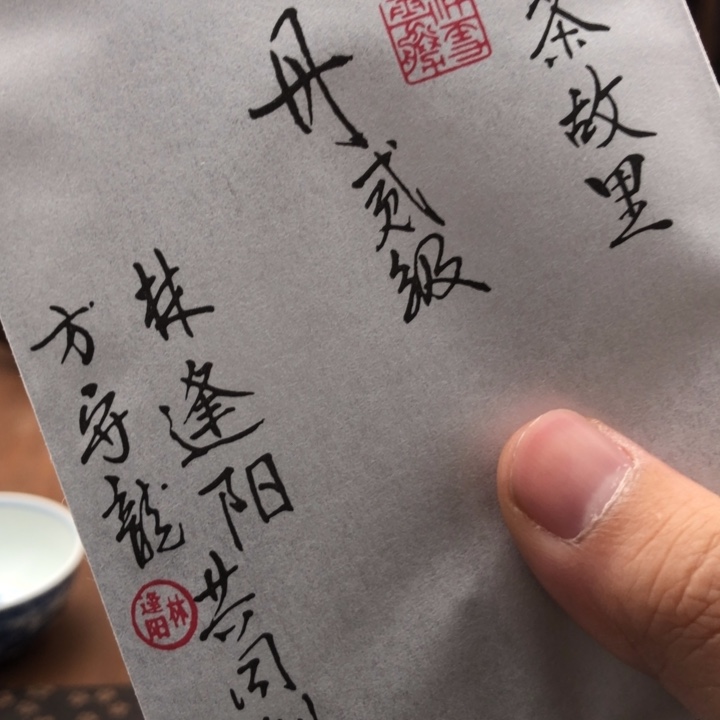 茶故里
丹贰級
林逢阳共同
方守龍
林逢阳